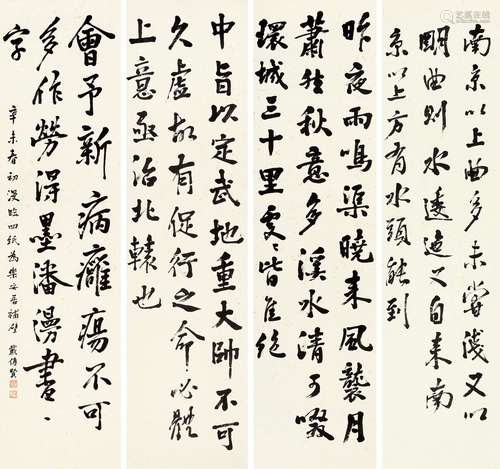 南京以上曲多未嘗淺又以
明曲則水逶迤又自来南
京以上方有水頭能到
昨夜雨鳴渠曉来風襲月
蕭然秋意多溪水清可啜
環城三十里處〻皆佳絕
中旨以定武地重大帥不可
久虛故有促行之命必體
上意亟治北轅也
會予新病癰瘍不可
多作勞得墨瀋漫書〻
字
辛未春初漫臨四紙為樂安居補壁 戴傳賢
艺典中国